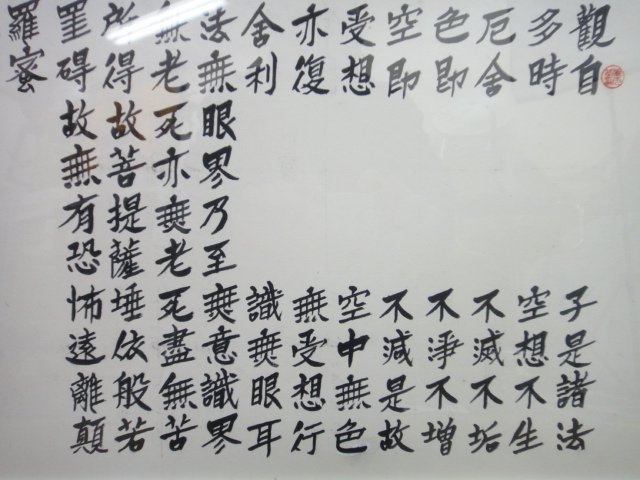 觀自
多時
厄舍
色即
空即
受想
亦復
舍利
子是諸法
空想不生
不滅不垢
不淨不增
不減是故
空中無色
無受想行
識無眼耳
法無眼界乃至無意識界
無老死亦無老死盡無苦
所得故菩提薩埵依般若
罣碍故無有恐怖遠離顛
羅蜜